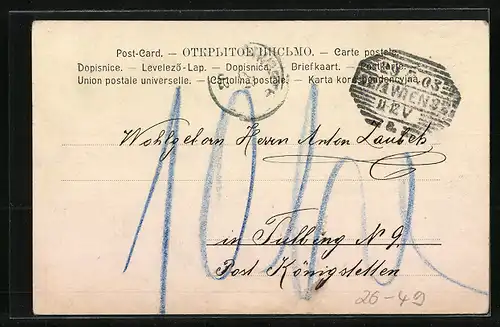 Post-Card. — ОТКРЫТОЕ ПИСЬМО. — Carte postale.
Dopisnice. — Levelező-Lap. — Dopisnica. Briefkaart. — Postkarte.
Union postale universelle. — Cartolina postale. — Karta korespondencyjna.
WIEN
Wohlgeborn Herrn Anton
in Tulbing N 9.
Post Königstetten
26-49